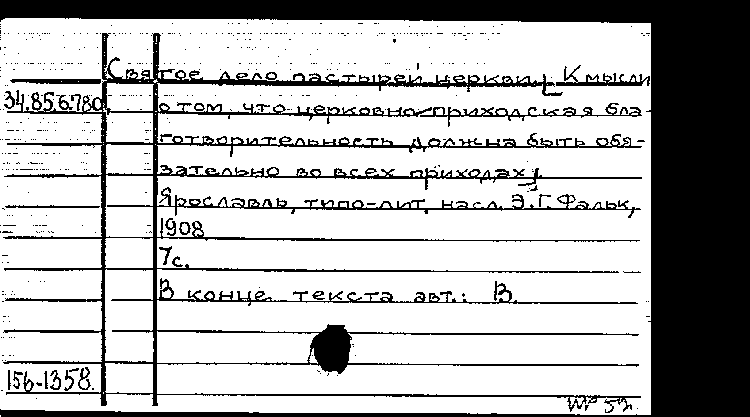 Святое дело пастырей церкви. [К мысли
34.85.6.780. о том, что церковно-приходская бла-
готворительность должна быть обя-
зательно во всех приходах].
Ярославль, типо-лит. насл. Э.Г. Фальк,
1908.
7с.
В конце текста авт.: В.
156-1358.